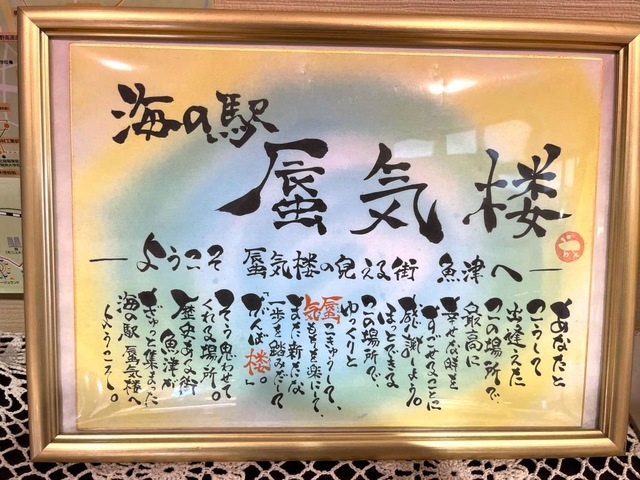 海の駅
蜃気楼
ようこそ 蜃気楼の見える街 魚津へ
あなたと
こうして
出逢えた
この場所で、
最高に
幸せな時を
すごせることに
感謝しよう。
ほっとできる
この場所で、
ゆっくりと
蜃こきゅうして、
気もちを楽にして、
また新たな
一歩を踏みだして
「がんば楼。」
そう思わせて
くれる場所。
歴史ある街
魚津が
ぎゅっと集まった
海の駅 蜃気楼へ
ようこそ。